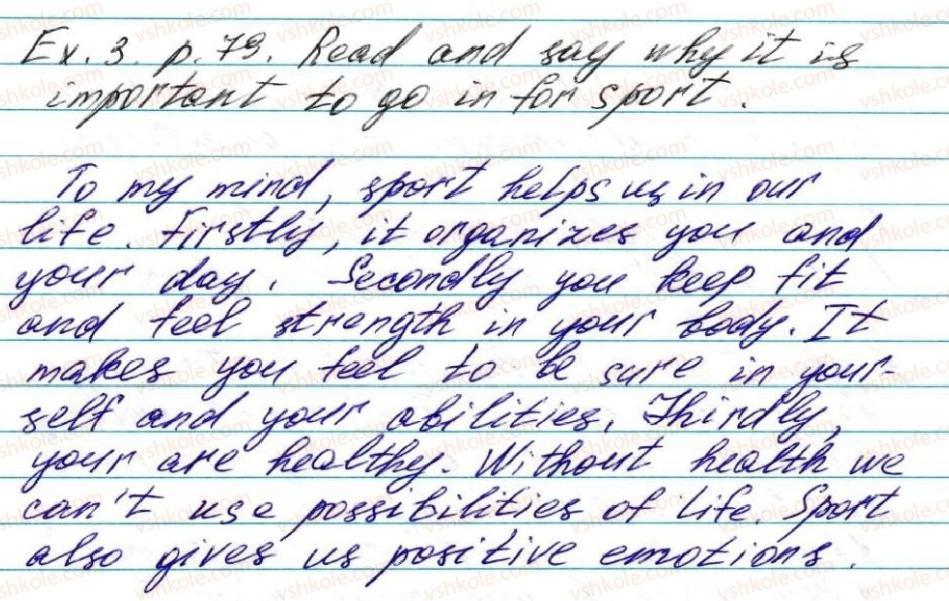 Ex. 3. p. 79. Read and say why it is
important to go in for sport.
To my mind, sport helps us in our
life. Firstly, it organizes you and
your day. Secondly you keep fit
and feel strength in your body. It
makes you feel to be sure in your-
self and your abilities. Thirdly,
your are healthy. Without health we
can't use possibilities of life. Sport
also gives us positive emotions.
vshkole.com